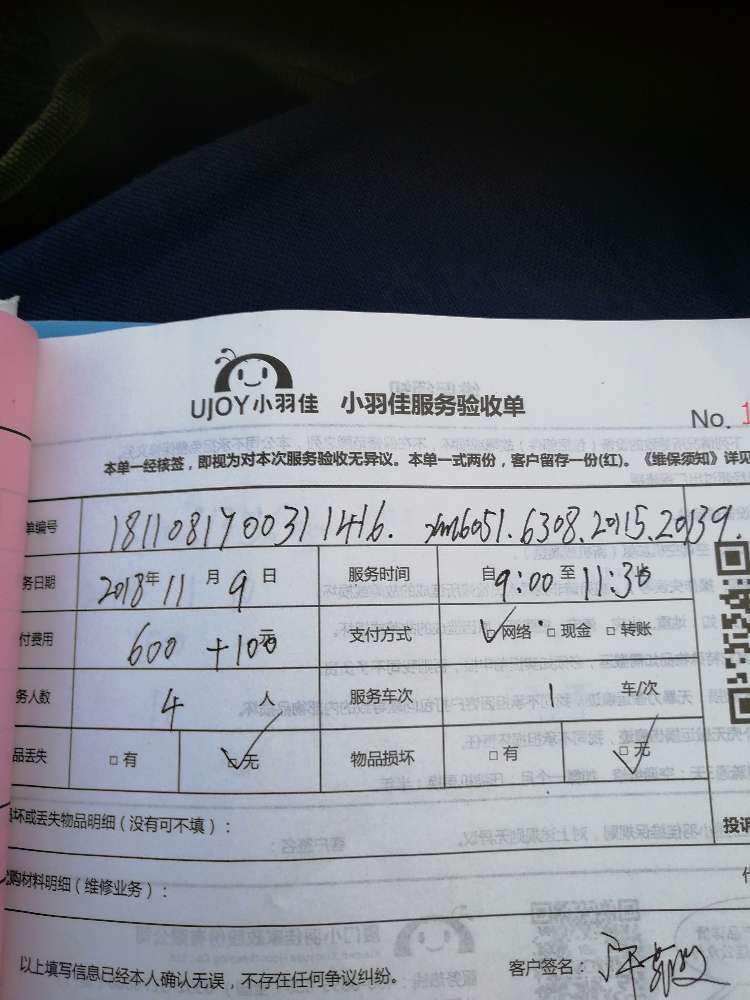 UJOY小羽佳 小羽佳服务验收单
No. 1
本单一经核签，即视为对本次服务验收无异议。本单一式两份，客户留存一份(红)。《维保须知》详见
单编号 1811081700311416. xm6051.6308.2015.20139.
务日期 2018年11月9日 服务时间 自9:00至11:30
付费用 600+100元 支付方式 □网络 □现金 □转账
务人数 4人 服务车次 1 车/次
品丢失 □有 □无 物品损坏 □有 □无
坏或丢失物品明细（没有可不填）： 投诉
购材料明细（维修业务）：
以上填写信息已经本人确认无误，不存在任何争议纠纷。 客户签名：